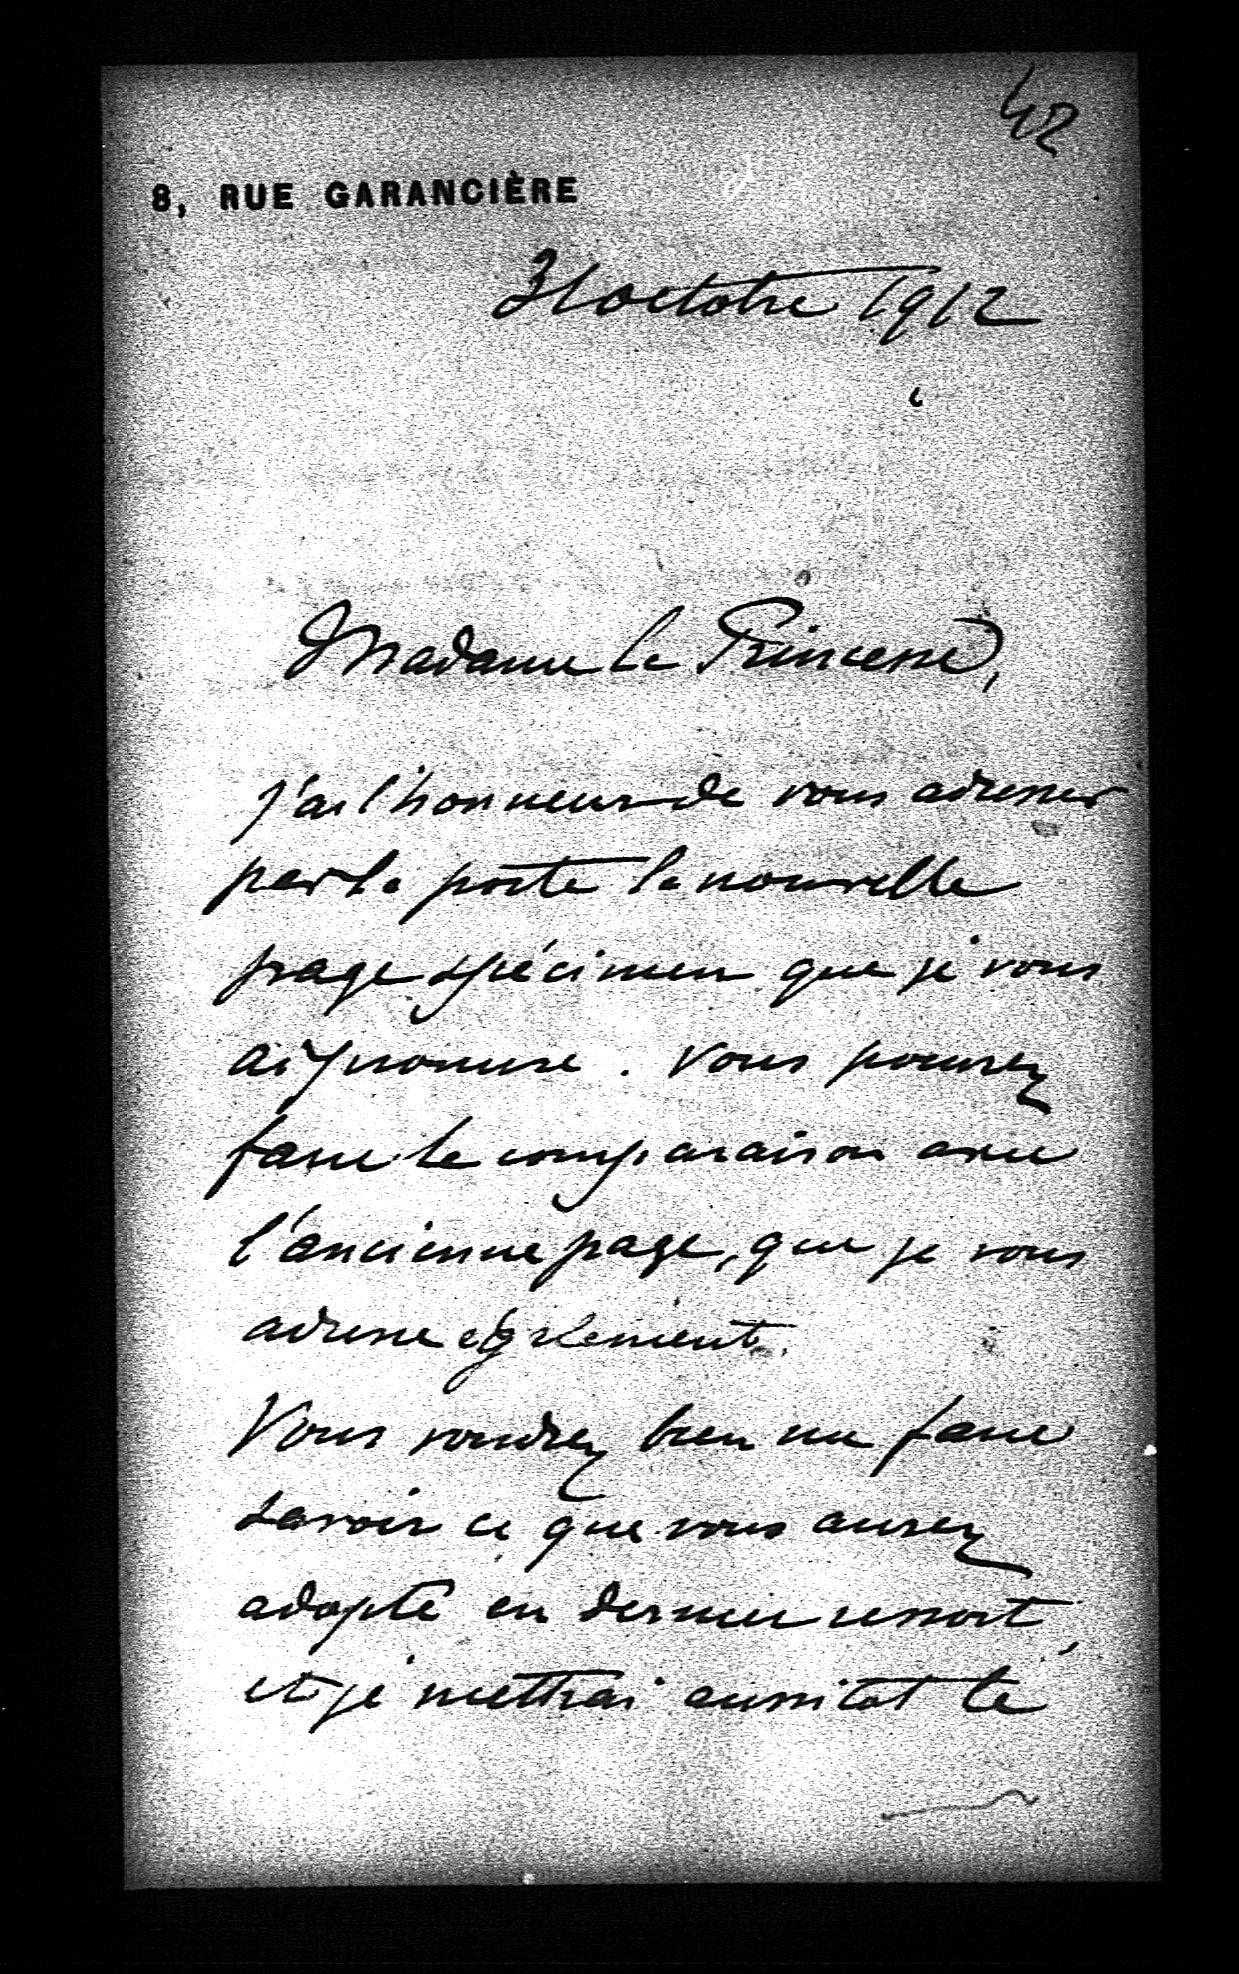 42
8, RUE GARANCIÈRE
31 octobre 1912
Madame la Princesse,
j'ai l'honneur de vous adresser
par la poste la nouvelle
page spécimen que je vous
ai promise. Vous pourrez
faire la comparaison avec
l'ancienne page, que je vous
adresse également.
Vous voudrez bien me faire
savoir ce que vous aurez
adopté en dernier ressort,
et je mettrai aussitôt le